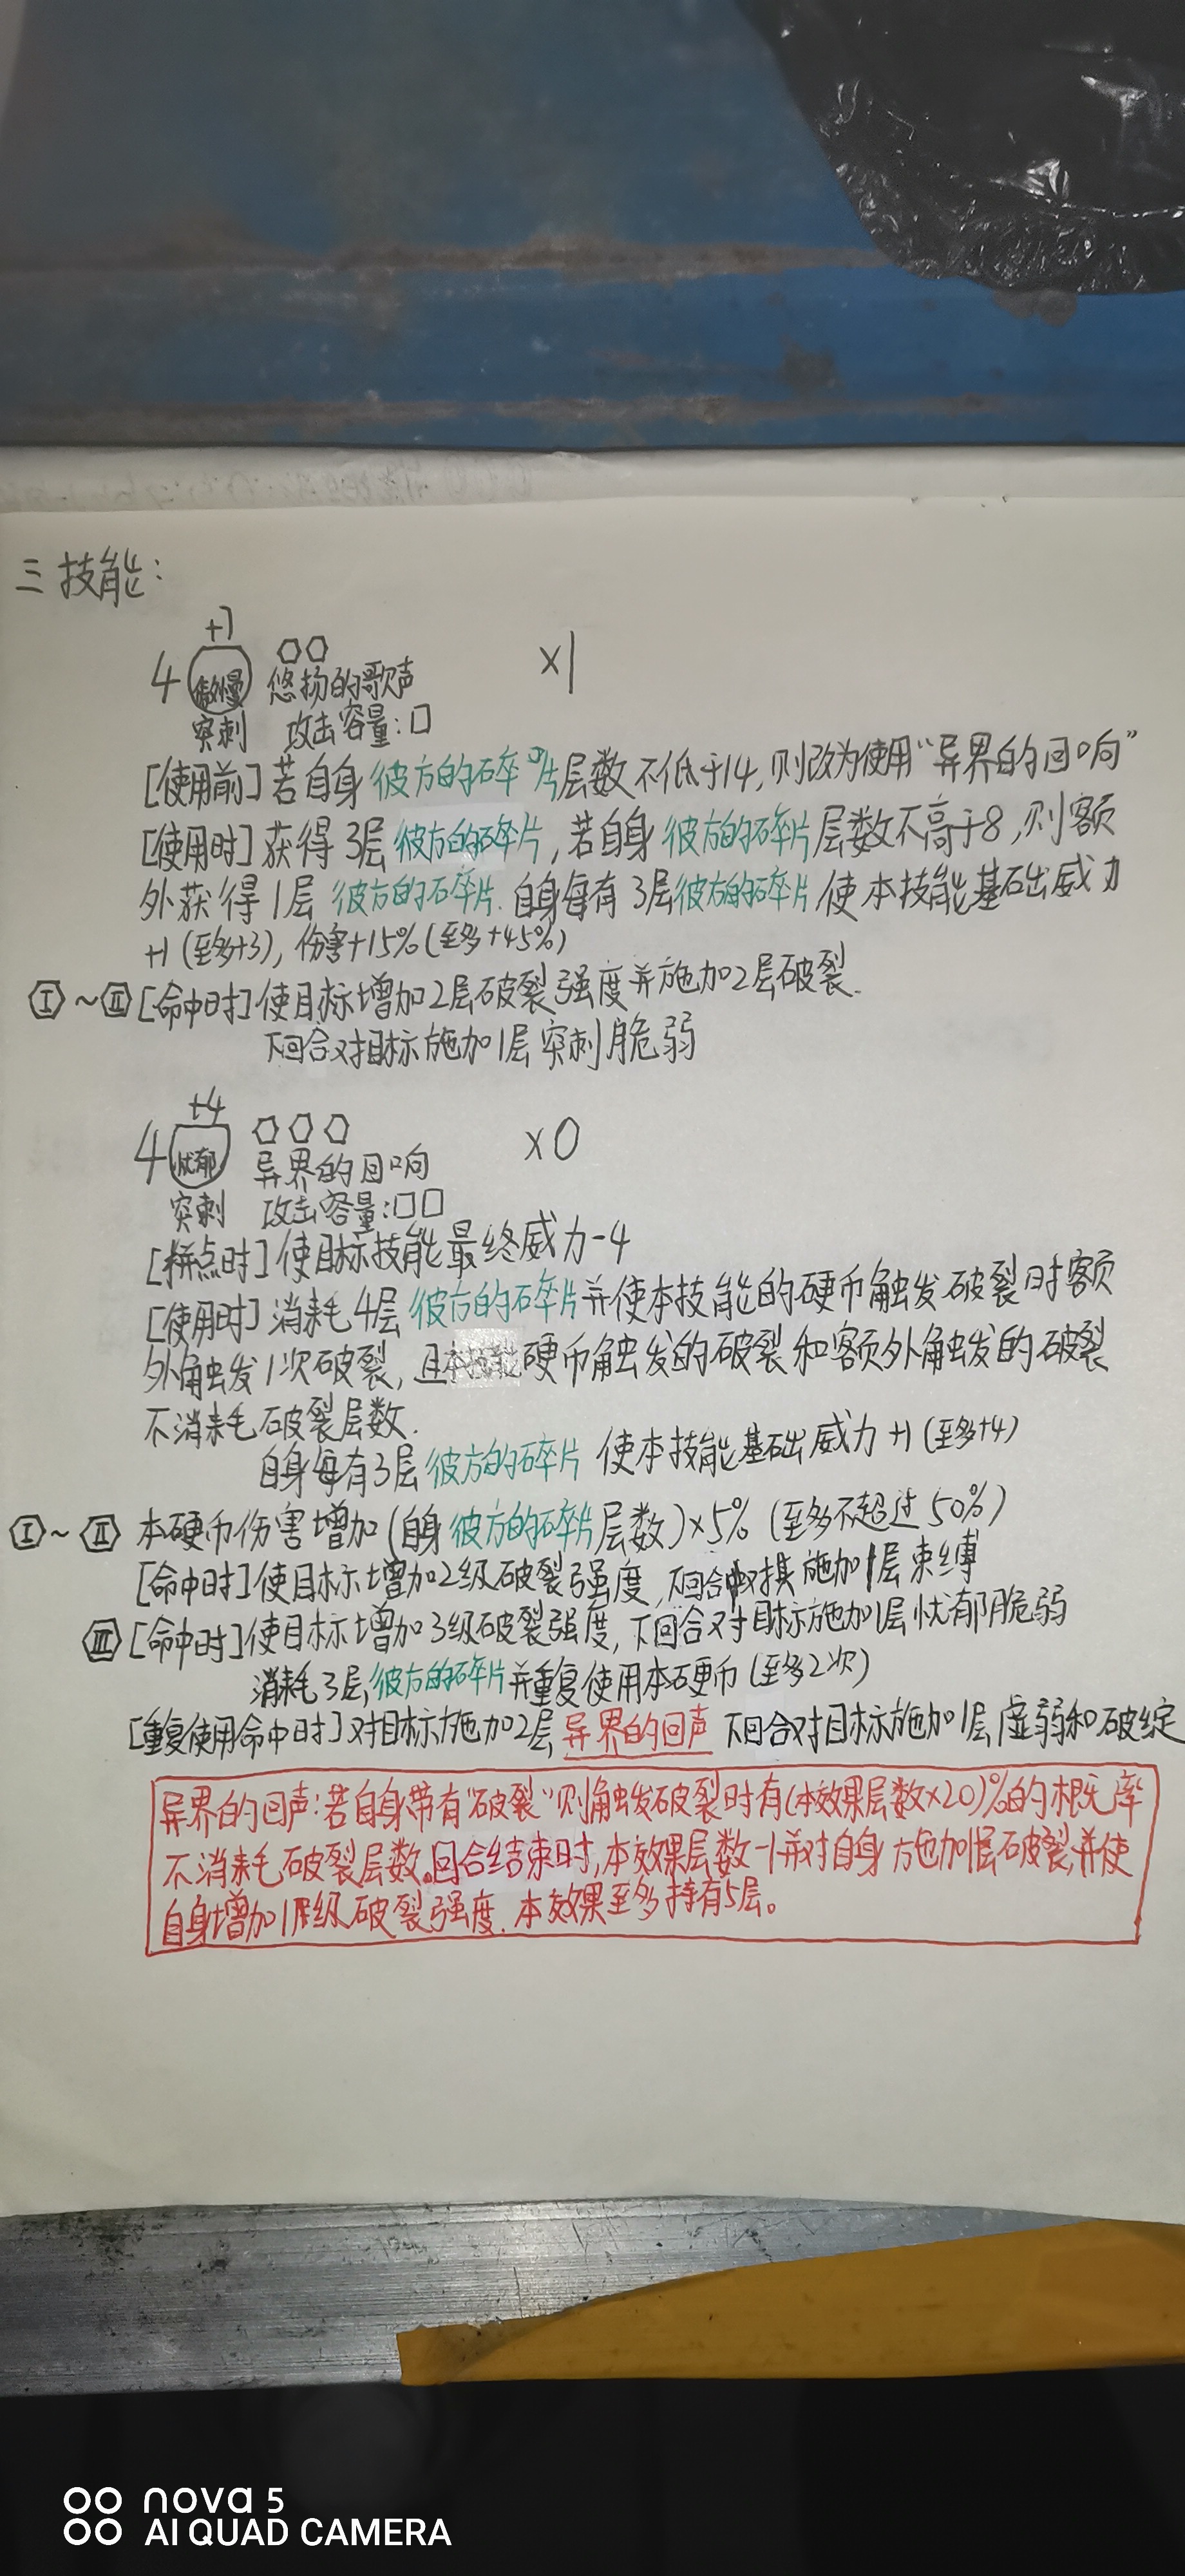 三技能：
+7
4 傲慢 悠扬的歌声 ×1
突刺 攻击容量：□
[使用前]若自身彼方的碎片层数不低于14，则改为使用“异界的回响”
[使用时]获得3层彼方的碎片，若自身彼方的碎片层数不高于8，则额
外获得1层彼方的碎片.自身每有3层彼方的碎片使本技能基础威力
+1(至多+3)，伤害+15%(至多+45%)
Ⅰ~Ⅱ[命中时]使目标增加2层破裂强度并施加2层破裂.
下回合对目标施加1层突刺脆弱
+4
4 忧郁 异界的回响 ×0
突刺 攻击容量：□□
[拼点时]使目标技能最终威力-4
[使用时]消耗4层彼方的碎片并使本技能的硬币触发破裂时额
外触发1次破裂，且本技能硬币触发的破裂和额外触发的破裂
不消耗破裂层数.
自身每有3层彼方的碎片使本技能基础威力+1(至多+4)
Ⅰ~Ⅱ 本硬币伤害增加(自身彼方的碎片层数)×5%(至多不超过50%)
[命中时]使目标增加2级破裂强度，下回合对其施加1层束缚
Ⅲ[命中时]使目标增加3级破裂强度，下回合对目标施加1层忧郁脆弱
消耗3层彼方的碎片并重复使用本硬币(至多2次)
[重复使用命中时]对目标施加2层异界的回声 下回合对目标施加1层虚弱和破绽
异界的回声：若自身带有“破裂”则触发破裂时有(本效果层数×20)%的概率
不消耗破裂层数。回合结束时，本效果层数-1并对自身施加1层破裂，并使
自身增加1级破裂强度.本效果至多持有5层。
nova 5
AI QUAD CAMERA